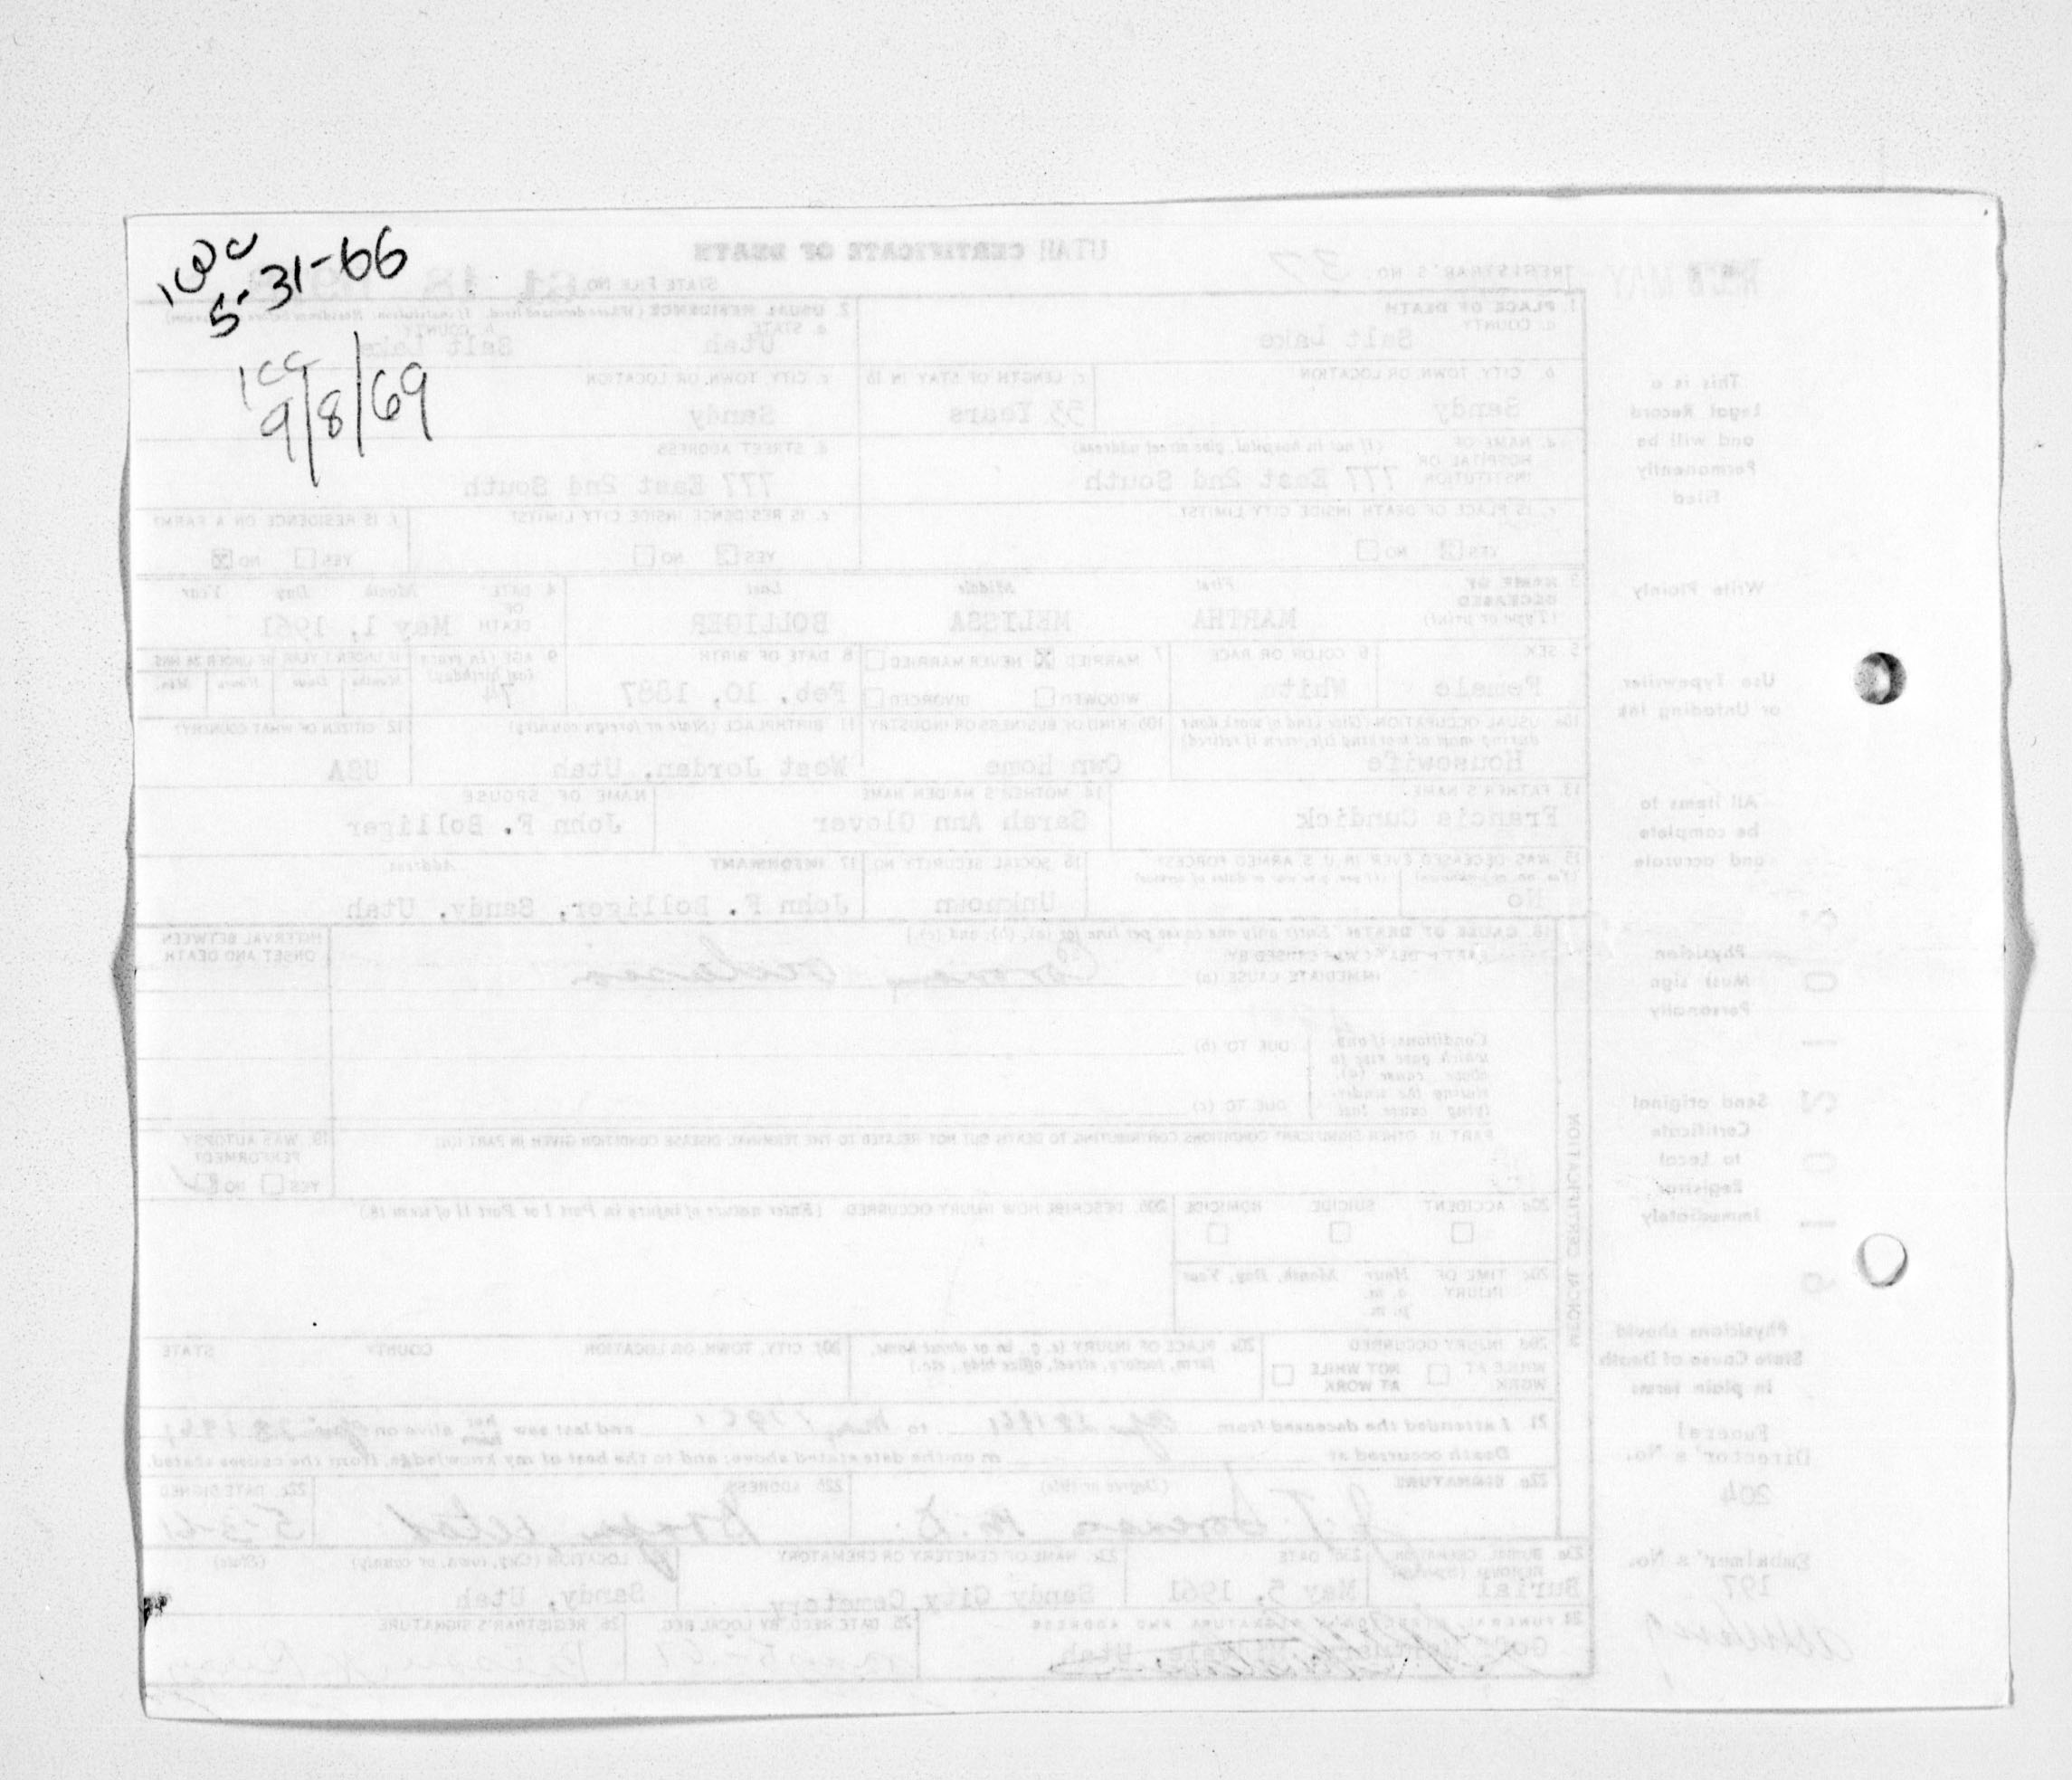 5-31-66
1cc
9/8/69
UTAH CERTIFICATE OF DEATH
REGISTRAR'S NO. 37
STATE FILE NO.
1. PLACE OF DEATH
a. COUNTY
Salt Lake
2. USUAL RESIDENCE (Where deceased lived. If institution: Residence before
a. STATE
Utah
b. COUNTY
Salt Lake
b. CITY, TOWN, OR LOCATION
Sandy
c. LENGTH OF STAY IN 1b
53 Years
c. CITY, TOWN, OR LOCATION
Sandy
d. NAME OF HOSPITAL OR INSTITUTION (If not in hospital, give street address)
777 East 2nd South
d. STREET ADDRESS
777 East 2nd South
e. IS PLACE OF DEATH INSIDE CITY LIMITS?
YES NO
e. IS RESIDENCE INSIDE CITY LIMITS?
YES NO
f. IS RESIDENCE ON A FARM?
YES NO
3. NAME OF DECEASED (Type or print)
First Middle Last
MARTHA MELISSA BOLLIGER
4. DATE OF DEATH Month Day Year
May 1, 1961
5. SEX
Female
6. COLOR OR RACE
White
7. MARRIED NEVER MARRIED
WIDOWED DIVORCED
8. DATE OF BIRTH
Feb. 10, 1887
9. AGE (In years last birthday)
74
10a. USUAL OCCUPATION (Give kind of work done during most of working life, even if retired)
Housewife
10b. KIND OF BUSINESS OR INDUSTRY
Own Home
11. BIRTHPLACE (State or foreign country)
West Jordan, Utah
12. CITIZEN OF WHAT COUNTRY?
USA
13. FATHER'S NAME
Francis Cundick
14. MOTHER'S MAIDEN NAME
Sarah Ann Glover
NAME OF SPOUSE
John F. Bolliger
15. WAS DECEASED EVER IN U.S. ARMED FORCES?
No
16. SOCIAL SECURITY NO.
Unknown
17. INFORMANT Address
John F. Bolliger, Sandy, Utah
18. CAUSE OF DEATH [Enter only one cause per line for (a), (b), and (c).]
PART I. DEATH WAS CAUSED BY:
IMMEDIATE CAUSE (a) Coronary occlusion
INTERVAL BETWEEN ONSET AND DEATH
Conditions, if any, which gave rise to above cause (a), stating the underlying cause last.
DUE TO (b)
DUE TO (c)
PART II. OTHER SIGNIFICANT CONDITIONS CONTRIBUTING TO DEATH BUT NOT RELATED TO THE TERMINAL DISEASE CONDITION GIVEN IN PART I(a)
19. WAS AUTOPSY PERFORMED?
YES NO
20a. ACCIDENT SUICIDE HOMICIDE
20b. DESCRIBE HOW INJURY OCCURRED. (Enter nature of injury in Part I or Part II of item 18.)
20c. TIME OF INJURY Hour Month, Day, Year
a. m.
p. m.
20d. INJURY OCCURRED
WHILE AT WORK NOT WHILE AT WORK
20e. PLACE OF INJURY (e. g., in or about home, farm, factory, street, office bldg., etc.)
20f. CITY, TOWN, OR LOCATION COUNTY STATE
MEDICAL CERTIFICATION
21. I attended the deceased from to May 1 1961 and last saw alive on
Death occurred at m on the date stated above; and to the best of my knowledge, from the causes stated.
22a. SIGNATURE (Degree or title)
22b. ADDRESS
Draper, Utah
22c. DATE SIGNED
5-3-61
23a. BURIAL, CREMATION, REMOVAL (Specify)
Burial
23b. DATE
May 5, 1961
23c. NAME OF CEMETERY OR CREMATORY
Sandy City Cemetery
23d. LOCATION (City, town, or county) (State)
Sandy, Utah
24. FUNERAL DIRECTOR'S SIGNATURE AND ADDRESS
Utah
25. DATE REC'D BY LOCAL REG.
26. REGISTRAR'S SIGNATURE
This is a
Legal Record
and will be
Permanently
Filed
Write Plainly
Use Typewriter
or Unfading Ink
All items to
be complete
and accurate
Physician
Must sign
Personally
Send original
Certificate
to Local
Registrar
Immediately
Physicians should
State Cause of Death
in plain terms
Funeral
Director's No.
204
Embalmer's No.
197